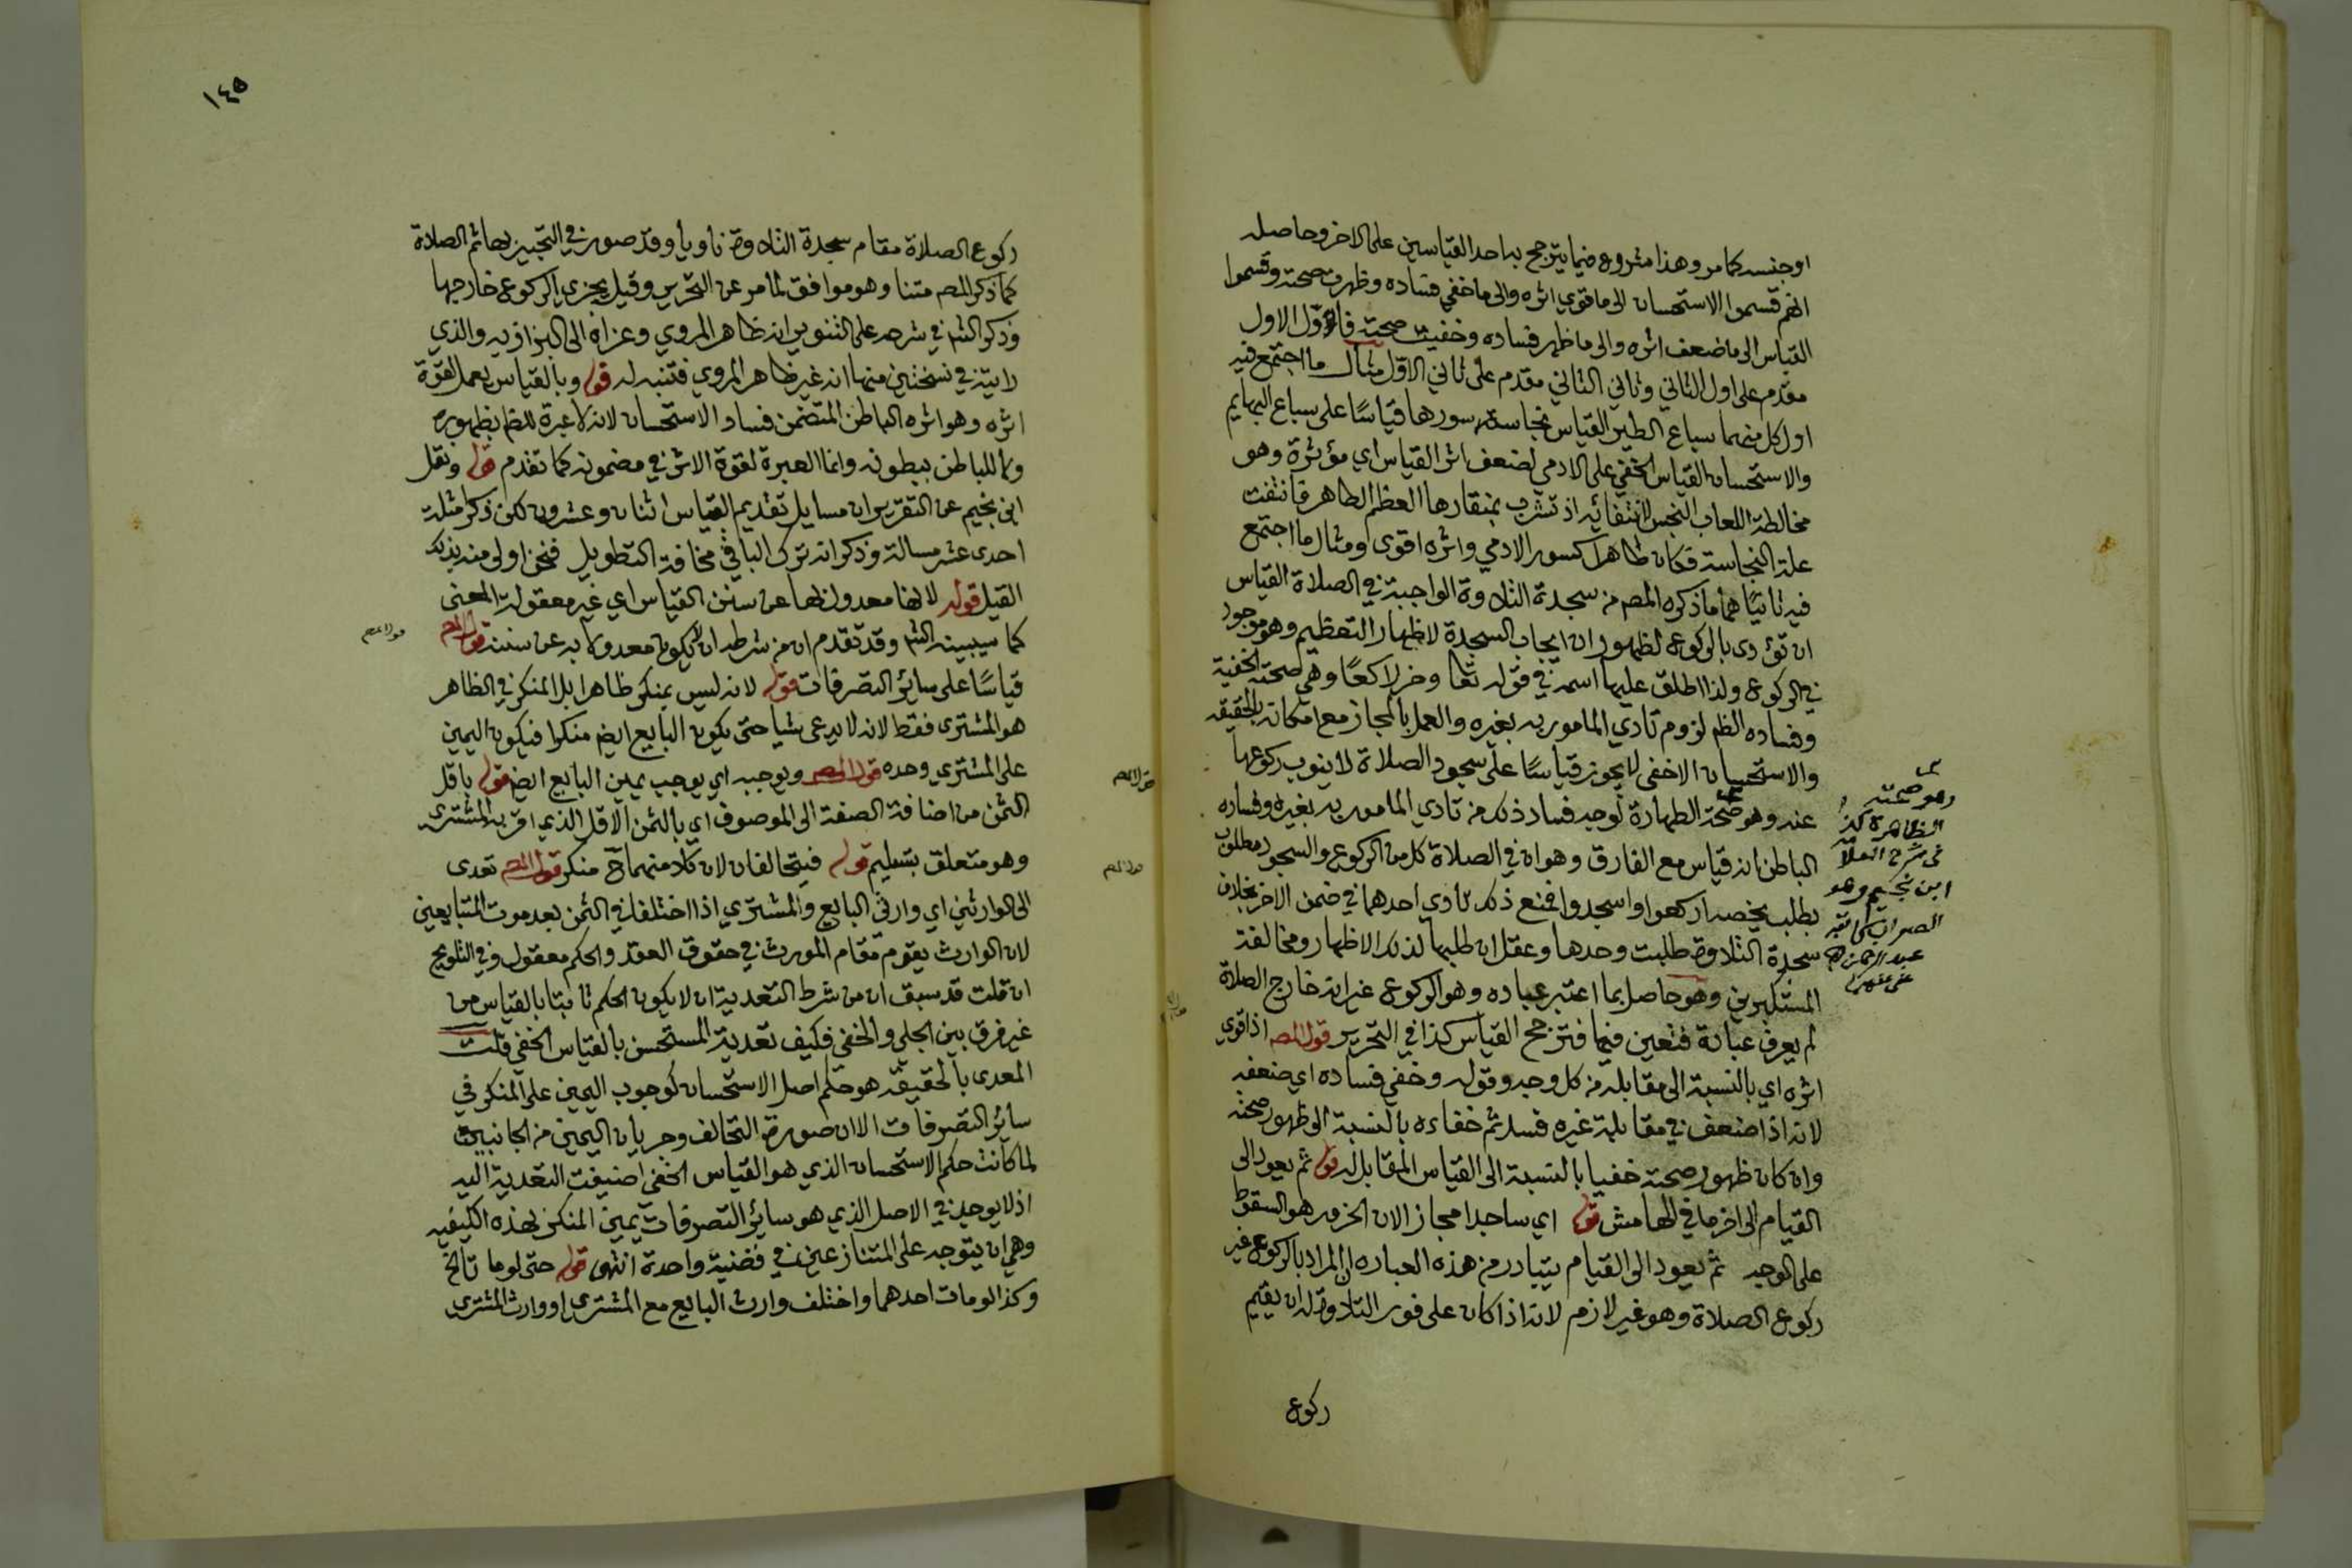 اوجنسه كما مر وهذا مشروع فيما يترجح به احد القياسين على الاخر وحاصله
انهم قسموا الاستحسان الى ما قوي اثره والى ما خفي فساده وظهرت صحته وقسموا
القياس الى ما ضعف اثره والى ما ظهر فساده وخفيت صحته فاول الاول
مقدم على اول الثاني وثاني الثاني مقدم على ثاني الاول مثال ما اجتمع فيه
اول كل منهما سباع الطير القياس نجاسة سورها قياسًا على سباع البهايم
والاستحسان القياس الخفي على الادمي لضعف اثر القياس اي مؤثره وهو
مخالطة اللعاب النجس لانتفائه اذ تشرب بمنقارها العظم الطاهر فانتفت
علة النجاسة فكان طاهرا كسور الادمي واثره اقوى ومثال ما اجتمع
فيه ثانيًا هما ما ذكره المص من سجدة التلاوة الواجبة في الصلاة القياس
ان تؤدى بالركوع لظهور ان ايجاب السجدة لاظهار التعظيم وهو موجود
في الركوع ولذا اطلق عليها اسمه في قوله تعا وخر راكعًا وهي صحته الخفية
وفساده الظم لزوم تادي المامور به بغيره والعمل بالمجاز مع امكانه بالحقيقة
والاستحسان الاخفى لا يجوز قياسًا على سجود الصلاة لا ينوب ركوعها
عنه وهو صحته الظاهرة لوجه فساد ذلك من تادي المامور به بغيره وفساده
الباطن انه قياس مع الفارق وهو ان في الصلاة كل من الركوع والسجود مطلوب
بطلب يخصه اركعوا واسجدوا فمنع ذلك تادي احدهما في ضمن الاخر بخلاف
سجدة التلاوة طلبت وحدها وعقل ان طلبها لذلك الاظهار ومخالفة
المستكبرين وهو حاصل بما اعتبر عباده وهو الركوع غير انه خارج الصلاة
لم يعرف عبادة فتعين فيها فترجح القياس كذا في التحرير قول المص اذا قوي
اثره اي بالنسبة الى مقابله من كل وجه وقوله وخفي فساده اي ضعفه
لانه اذا ضعف في مقابلة غيره فسد ثم خفاءه بالنسبة الى ظهور صحته
وان كان ظهور صحته خفيا بالنسبة الى القياس المقابل له قوله ثم يعود الى
القيام الى اخر ما في الهامش قوله اي ساجدا مجاز الان الخرور هو السقوط
على الوجه ثم يعود الى القيام يتبادر من هذه العباره ان المراد بالركوع غير
ركوع الصلاة وهو غير لازم لانه اذا كان على فور التلاوة له ان يقيم
ركوع
وهو صحته
الظاهرة كذا
في شرح العلامة
ابن نجيم وهو
الصواب كاتبه
عبد الرحمن
عفى عنه
١٤٥
ركوع الصلاة مقام سجدة التلاوة ناويا وقد صور في التجنيز بها ثم الصلاة
كما ذكر المص متنا وهو موافق لما مر عن التحرير وقيل يجزي الركوع خارجها
وذكر الشم في شرحه على التنوير انه ظاهر المروي وعزاه الى البزازيه والذي
رايته في نسختين منها انه غير ظاهر المروي فتنبه له قوله وبالقياس يعمل لقوة
اثره وهو اثره الباطن المتضمن فساد الاستحسان لانه لا عبرة للظم بظهوره
ولا للباطن ببطونه وانما العبرة لقوة الاثر في مضمونه كما تقدم قوله ونقل
ابن نجيم عن التقرير ان مسايل تقديم القياس اثنان وعشرون لكن ذكر امثلة
احدى عشر مسالة وذكر انه ترك الباقي مخافة التطويل فنحن اولى منه بذلك
القيل قوله لانها معدول بها عن سنن القياس اي غير معقولة المعنى
كما سيبينه الشم وقد تقدم ان من شرطه ان لا يكون معدولا به عن سننه قول المص
قياسًا على سائر التصرفات قوله لانه ليس بمنكر ظاهرا بل المنكر في الظاهر
هو المشترى فقط لانه لا يدعى شيا حتى يكون البايع ايضم منكرا فيكون اليمين
على المشتري وحده قول المص ويوجبه اي يوجب يمين البايع ايضم قوله باقل
الثمن من اضافة الصفة الى الموصوف اي بالثمن الاقل الذي اقر به المشترى
وهو متعلق بتسليم قوله فيتحالفان لان كلا منهما ح منكر قول المص تعدى
الى الوارثين اي وارثي البايع والمشتري اذا اختلفا في الثمن بعد موت المتبايعين
لان الوارث يقوم مقام المورث في حقوق العقد والحكم معقول وفي التلويح
ان قلت قد سبق ان من شرط التعدية ان لا يكون الحكم ثابتا بالقياس من
غير فرق بين الجلي والخفي فكيف تعدية المستحسن بالقياس الخفي قلت
المعدى بالحقيقة هو حكم اصل الاستحسان كوجوب اليمين على المنكر في
سائر التصرفات الا ان صورة التحالف وجريان اليمين من الجانبين
لما كانت حكم الاستحسان الذي هو القياس الخفي اضيفت التعدية اليه
اذ لا يوجد في الاصل الذي هو سائر التصرفات يمين المنكر بهذه الكيفيه
وهي ان يتوجه على المتنازعين في قضية واحدة انتهى قوله حتى لو ماتا الخ
وكذا لو مات احدهما واختلف وارث البايع مع المشترى او وارث المشترى
قول المص
قول المص
قول المص